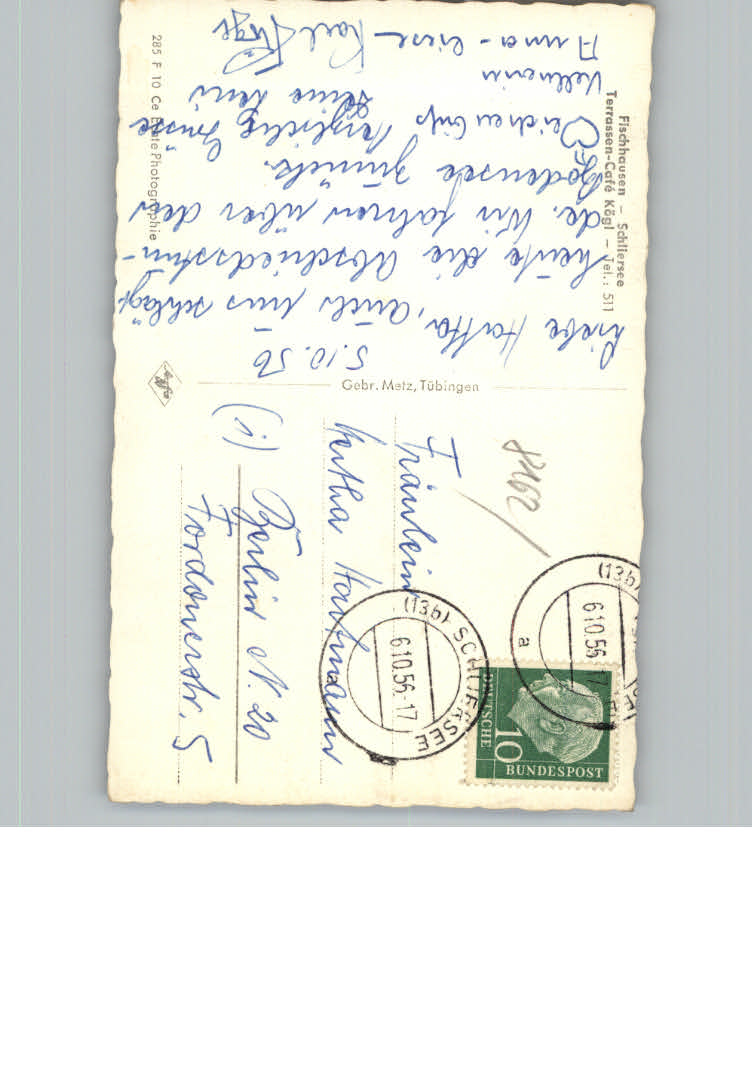 Fischhausen – Schliersee
Terrassen-Café Kögl – Tel.: 511
5.10.56
Liebe Hertha, auch uns schlägt
heute die Abschiedsstun-
de. Wir fahren über den
Bodensee zurück.
Herzliche Grüsse
Anna-Liese Karl
285 F 10 Ce
Echte Photographie
Gebr. Metz, Tübingen
Agfa
8162
Fräulein
Hertha Hartmann
Berlin N. 20
Fordonerstr. 5
(1)
(13b) SCHLIERSEE
6.10.56.-17
a
(13b)
6.10.56.-17
a
DEUTSCHE
10
BUNDESPOST